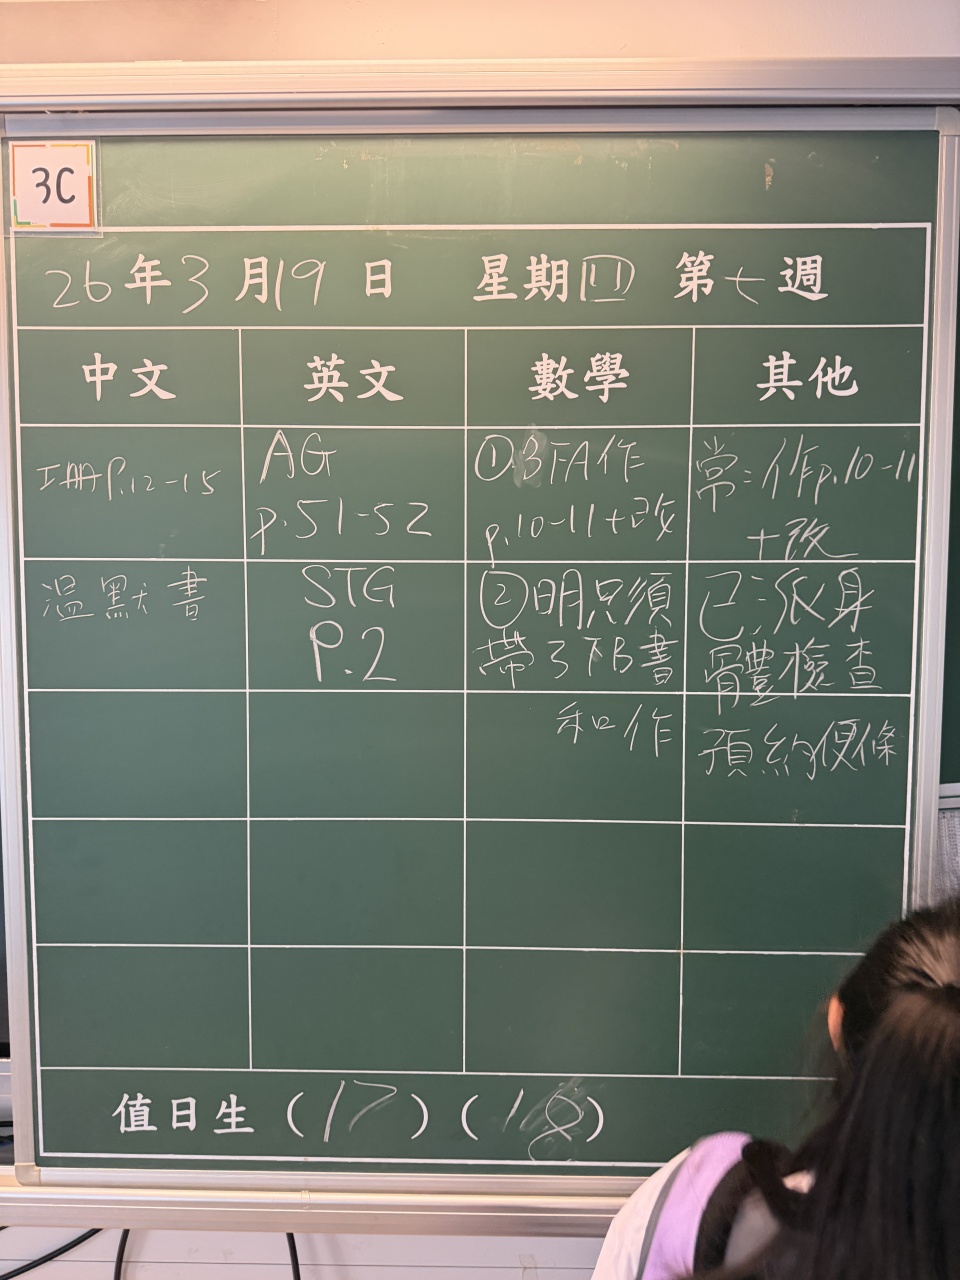 3C
26年3月19日 星期四 第七週
中文 英文 數學 其他
工冊P.12-15
溫默書
AG
p.51-52
STG
P.2
①3下A作
p.10-11+改
②明只須
帶3下B書
和作
常:作p.10-11
+改
已派身
體檢查
預約便條
值日生(17)(18)